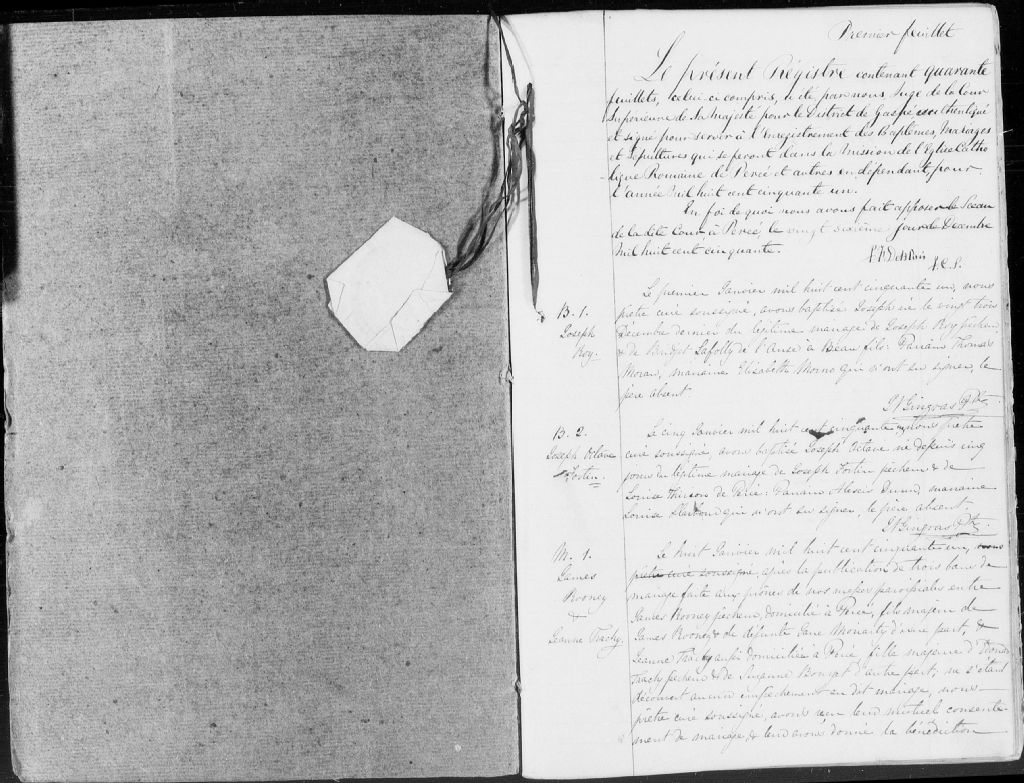 Premier feuillet
Le présent Régistre contenant quarante
feuillets, celui-ci compris, a été par nous Juge de la Cour
Supérieure de Sa Majesté pour le District de Gaspé authentiqué
et signé pour servir à l'Enregistrement des Baptêmes, Mariages
et Sépultures qui se feront dans la Mission de l'Eglise Catho
lique Romaine de Percé et autres en dépendant, pour
l'année Mil huit cent cinquante un.
En foi de quoi nous avons fait apposer le Sceau
de la dite Cour à Percé, le vingt sixième jour de Décembre
Mil huit cent cinquante.
J. C. S.
B. 1.
Joseph
Roy.
Le premier Janvier mil huit cent cinquante un, nous
prêtre curé soussigné, avons baptisé Joseph né le vingt trois
Décembre dernier du légitime mariage de Joseph Roy pêcheur
& de Bridget Lafolly de l'Anse à Beau fils: Parrain Thomas
Moran, marraine Elisabeth Morno qui n'ont su signer, le
père absent.
Gingras Ptre
B. 2.
Joseph Octave
Fortin.
Le cinq Janvier mil huit cent cinquante un, nous prêtre
curé soussigné, avons baptisé Joseph Octave né depuis cinq
jours du légitime mariage de Joseph Fortin pêcheur & de
Louise de Percé: Parrain Alexis Dunn, marraine
Louise qui n'ont su signer, le père absent.
Gingras Ptre
M. 1.
James
Rooney
&
Jeanne Trachy.
Le huit Janvier mil huit cent cinquante un, nous
prêtre curé soussigné, après la publication de trois bans de
mariage faite aux prônes de nos messes paroissiales entre
James Rooney pêcheur, domicilié à Percé, fils majeur de
James Rooney & de défunte Jane Moriarty d'une part, &
Jeanne Trachy aussi domiciliée à Percé fille majeure d'
Trachy pêcheur & de Suzanne d'autre part; ne s'étant
découvert aucun empêchement au dit mariage, nous
prêtre curé soussigné, avons reçu leur mutuel consente-
ment de mariage, & leur avons donné la bénédiction